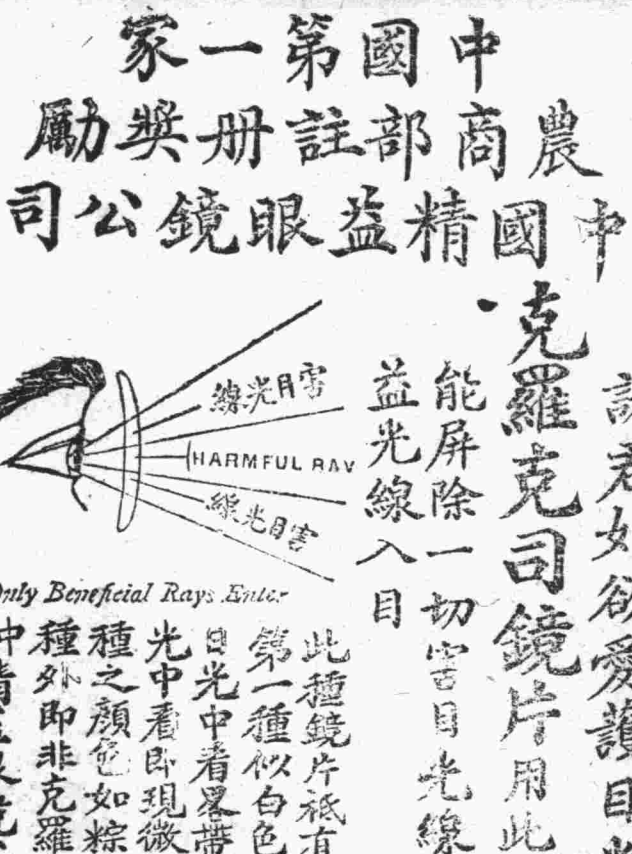 中國第一家
農商部註册獎勵
中國精益眼鏡公司
愛護目
克羅克司鏡片用此
能屏除一切害目光線
益光線入目
害目光線
HARMFUL RAY
害目光線
Only Beneficial Rays Enter
此種鏡片祇有
第一種似白色
日光中看畧帶
光中看即現微
種之顏色如粽
種外即非克羅